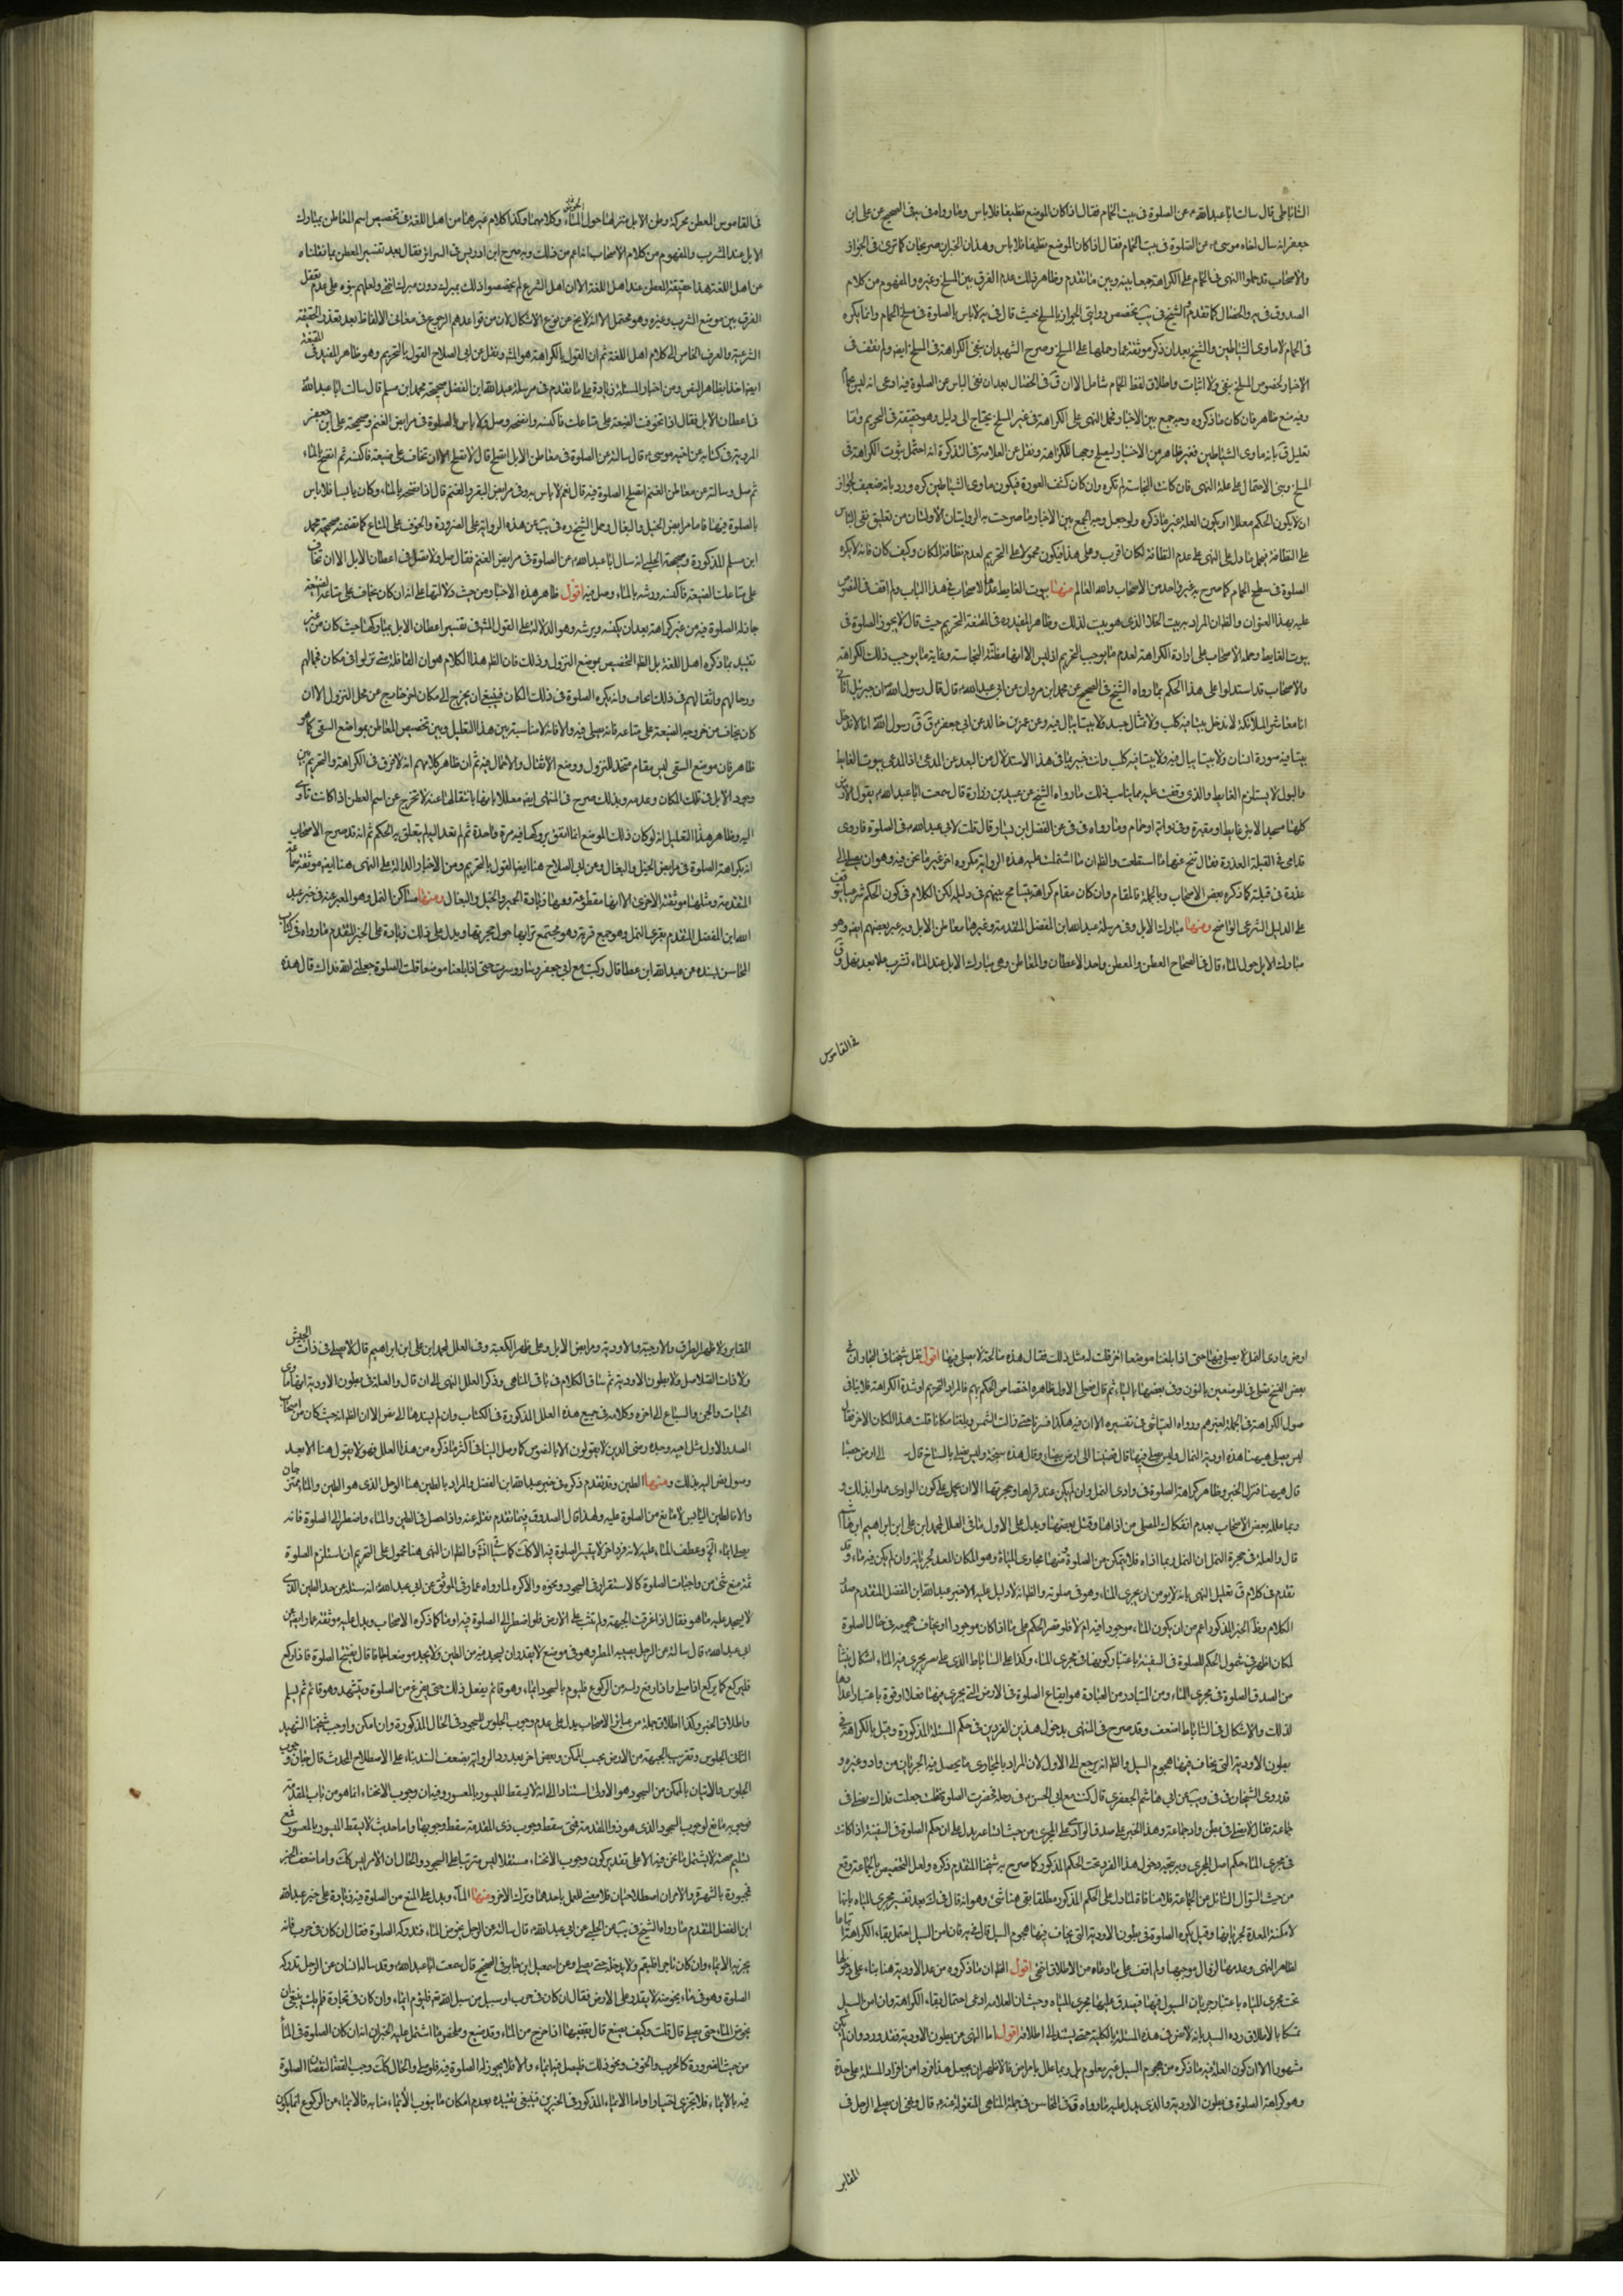 الساباطى قال سالت ابا عبدالله ع عن الصلوة فى بيت الحمام فقال اذا كان الموضع نظيفا فلا باس وما رواه فى يب فى الصحيح عن على ابن
جعفر انه سال اخاه موسى ع عن الصلوة فى بيت الحمام فقال اذا كان الموضع نظيفا فلا باس وهذان الخبران صريحان كما ترى فى الجواز
والاصحاب قد حملوا النهى فى الحمام على الكراهة جمعا بينه وبين ما تقدم وظاهر ذلك عدم الفرق بين المسلخ وغيره والمفهوم من كلام
الصدوق فى يه والخصال كما تقدم والشيخ فى يب تخصيص روايتى الجواز بالمسلخ حيث قال فى يه لا باس بالصلوة فى مسلخ الحمام وانما يكره
فى الحمام لانه ماوى الشياطين والشيخ بعد ان ذكر موثقة عمار حملها على المسلخ وصرح الشهيدان بنفى الكراهة فى المسلخ ايضا ولم نقف فى
الاخبار لخصوص المسلخ بنفى ولا اثبات واطلاق لفظ الحمام شامل الا ان ق فى الخصال بعد ان نفى الباس عن الصلوة فيه ادعى انه ليس بحمام
وفيه منع ظاهر فان كان ما ذكروه وجه جمع بين الاخبار فحمل النهى على الكراهة فى غير المسلخ يحتاج الى دليل وهو حقيقة فى التحريم واما
تعليل ق بانه ماوى الشياطين فغير ظاهر من الاخبار ليصلح وجها للكراهة ونقل عن العلامة فى التذكرة انه احتمل ثبوت الكراهة فى
المسلخ وبنى الاحتمال على علة النهى فان كانت النجاسة لم تكره وان كان كشف العورة فيكون ماوى الشياطين كره ورد بانه ضعيف لجواز
ان لا يكون الحكم معللا او يكون العلة غير ما ذكره ولو جعل وجه الجمع بين الاخبار ما صرحت به الروايتان الاولتان من تعليق نفى الباس
على النظافة فيحمل ما دل على النهى على عدم النظافة لكان اقرب وعلى هذا فيكون محمولا على التحريم لعدم نظافة المكان وكيف كان فانه لا يكره
الصلوة فى سطح الحمام كما صرح به غير واحد من الاصحاب والله العالم ومنها بيوت الغايط عدها الاصحاب فى هذا الباب ولم اقف فى النصوص
عليه بهذا العنوان والظ ان المراد به بيت الخلا الذى هو بيت لذلك وظاهر المفيد ره فى المقنعة التحريم حيث قال لا يجوز الصلوة فى
بيوت الغايط وحمله الاصحاب على ارادة الكراهة لعدم ما يوجب التحريم اذ ليس الا انها مظنة النجاسة وغاية ما يوجب ذلك الكراهة
والاصحاب قد استدلوا على هذا الحكم بما رواه الشيخ فى الصحيح عن محمد ابن مروان عن ابى عبدالله ع قال قال رسول الله ص ان جبرئيل اتانى
انا معاشر الملائكة لا ندخل بيتا فيه كلب ولا تمثال جسد ولا بيتا يبال فيه وعن عمرو بن خالد عن ابى جعفر ع ق ق رسول الله انا لا ندخل
بيتا فيه صورة انسان ولا بيتا يبال فيه ولا بيتا فيه كلب وانت خبير بما فى هذا الاستدلال من البعد عن المدعى اذ المدعى بيوت الغايط
والبول لا يستلزم الغايط والذى وقفت عليه مما يناسب ذلك ما رواه الشيخ عن عبيد بن زرارة قال سمعت ابا عبدالله ع يقول الارض
كلها مسجد الا بئر غايط او مقبرة او حمام وما رواه فى فى عن الفضل ابن يسار قال قلت لابى عبدالله ع اقوم فى الصلوة فارى
قدامى فى القبلة العذرة فقال تنح عنها ما استطعت والظ ان ما اشتملت عليه هذه الرواية مكروه اخر غير ما نحن فيه وهو ان يصلى الى
عذرة فى قبلته كما ذكره بعض الاصحاب وبالجملة فالمقام وان كان مقام كراهة يتسامح بينهم فى دليله لكن الكلام فى كون الحكم شرعيا يتوقف
على الدليل الشرعى الواضح ومنها مبارك الابل وفى مرسلة عبدالله ابن الفضل المتقدمة وغيرها معاطن الابل وبه عبر بعضهم ايضا وهو
مبارك الابل حول الماء قال فى الصحاح العطن والمعطن واحد الاعطان والمعاطن وهى مبارك الابل عند الماء تشرب عللا بعد نهل وق
فى القاموس
فى القاموس المعطن محركة وطن الابل ومنزلها حول الماء وكلامهما وكذا كلام غيرهما من اهل اللغة فى تخصيص اسم المعاطن بمبارك
الابل عند الشرب والمفهوم من كلام الاصحاب انه اعم من ذلك وبه صرح ابن ادريس فى السرائر فقال بعد تفسير المعطن بما نقلناه
عن اهل اللغة هذا حقيقة المعطن عند اهل اللغة الا ان اهل الشرع لم يخصصوا ذلك بمبرك دون مبرك انتهى
الفرق بين موضع الشرب وغيره وهو محتمل الا انه لا يخ عن نوع الاشكال لان من قواعدهم الرجوع فى معانى الالفاظ بعد تعذر الحقيقة
الشرعية والعرف الخاص الى كلام اهل اللغة ثم ان القول بالكراهة هو المش ونقل عن ابى الصلاح القول بالتحريم وهو ظاهر المفيد فى المقنعة
ايضا اخذا بظاهر النص ومن اخبار المسئلة زيادة على ما تقدم فى مرسلة عبدالله ابن الفضل صحيحة محمد ابن مسلم قال سالت ابا عبدالله
فى اعطان الابل فقال اذا تخوفت الضيعة على متاعك فاكنسه وانضحه وصل ولا باس بالصلوة فى مرابض الغنم وصحيحة على ابن جعفر
المروية فى كتابه عن اخيه موسى ع قال سالته عن الصلوة فى معاطن الابل اتصلح قال لا تصلح الا ان تخاف على ضيعة فاكنسه ثم انضح بالماء
ثم صل وسالته عن معاطن الغنم اتصلح الصلوة فيه قال نعم لا باس به وفى مرابض البقر والغنم قال اذا نضحته بالماء وكان يابسا فلا باس
بالصلوة فيها فاما مرابض الخيل والبغال وحمل الشيخ ره فى يب عن هذه الرواية على الضرورة والخوف على المتاع كما تضمنته صحيحة محمد
ابن مسلم المذكورة وصحيحة الحلبى انه سال ابا عبدالله ع عن الصلوة فى مرابض الغنم فقال صل ولا تصل فى اعطان الابل الا ان تخاف
على متاعك الضيعة فاكنسه ورشه بالماء وصل فيه اقول ظاهر هذه الاخبار من حيث دلالتها على انه ان كان يخاف على متاعه الضيعة
جاز له الصلوة فيه من غير كراهة بعد ان يكنسه ويرشه وهو الدلالة على القول المش فى تفسير اعطان الابل بمباركها حيث كان من غير
تقييد بما ذكره اهل اللغة بل الظ التخصيص بموضع النزول وذلك فان الظ هذا الكلام هو ان القافلة متى نزلوا فى مكان فجمالهم
ورحالهم واثقالهم فى ذلك المكان وانه يكره الصلوة فى ذلك المكان فينبغى ان يخرج الى مكان اخر خارج عن محل النزول الا ان
كان يخاف من خروجه الضيعة على متاعه فانه يصلى فيه والا فانه لا مناسبة بين هذا التعليل وبين تخصيص المعاطن بمواضع السقى كما هو
ظاهر فان موضع السقى ليس مقام متخذ للنزول ووضع الاثقال والاحمال فيه ثم ان ظاهر كلامهم انه لا فرق فى الكراهة والتحريم بين
وجود الابل فى ذلك المكان وعدمه وبذلك صرح فى المنتهى ايضا معللا بانها بانتقالها عنه لا تخرج عن اسم المعطن اذا كانت تاوى
اليه وظاهر هذا التعليل انه لو كان ذلك الموضع انما اتفق بروكها فيه مرة واحدة ثم لم تعد اليه لم يتعلق به الحكم ثم انه قد صرح الاصحاب
انه بكراهة الصلوة فى مرابض الخيل والبغال وعن ابى الصلاح هنا ايضا القول بالتحريم ومن الاخبار الدالة على النهى هنا ايضا موثقة سماعة
المتقدمة ومثلها موثقته الاخرى الا انها مقطوعة وفيها زيادة الحمير والخيل والبغال ومنها مساكن النمل وهو المعبر عنه فى خبر عبد
الله ابن الفضل المتقدم بقرى النمل وهو جمع قرية وهو مجتمع ترابها حول حجرتها ويدل على ذلك زيادة على الخبر المتقدم ما رواه فى كتاب
المحاسن بسنده عن عبدالله ابن عطا قال ركبت مع ابى جعفر ع وسار وسرت حتى اذا بلغنا موضعا قلت الصلوة جعلنى الله فداك قال هذه
ارض وادى النمل لا يصلى فيها حتى اذا بلغنا موضعا اخر قلت له مثل ذلك فقال هذه مالحة لا يصلى فيها اقول نقل شيخنا فى البحار ان فى
بعض النسخ نصلى فى الموضعين بالنون وفى بعضها بالياء ثم قال فعلى الاول ظاهره اختصاص الحكم بهم فالمراد التحريم او شدة الكراهة فلا ينافى
حصول الكراهة فى الجملة لغيرهم ورواه العياشى فى تفسيره الا ان فيه هكذا فسرنا حتى زالت الشمس وبلغنا مكانا قلت هذا المكان الاخر فقال
ليس يصلى هيهنا هذه اودية النمال وليس يصلى فيها قال فمضينا الى ارض بيضاء قال هذه سبخة وليس يصلى بالسباخ قال فمضينا الى ارض حصباء
قال هيهنا فنزل الخبر وظاهره كراهة الصلوة فى وادى النمل وان لم يكن عند قراها وحجرتها الا ان يحمل على كون الوادى مملوا بذلك و
ربما علله بعض الاصحاب بعدم انفكاك المصلى من اذاها وقتل بعضها ويدل على الاول ما فى العلل لمحمد ابن على ابن ابراهيم ابن هاشم
قال والعلة فى حجرة النمل ان النمل ربما اذاه فلا يتمكن من الصلوة ومنها مجارى المياه وهو المكان المعد لجريانه وان لم يكن فيه ماء وقد
تقدم فى كلام ق تعليل النهى بانه لا يؤمن ان يجرى الماء وهو فى صلوته والظ انه لا دليل عليه الا خبر عبدالله ابن الفضل المتقدم صدر
الكلام وظ الخبر المذكور اعم من ان يكون الماء موجودا فيه ام لا فلو قصر الحكم على ما اذا كان موجودا او يخاف هجومه فى حال الصلوة
لكان اظهر فى شمول الحكم للصلوة فى السفينة باعتبار كونها فى مجرى الماء وكذا على الساباط الذى على نهر يجرى فيه الماء اشكال ينشأ
من الصدق الصلوة فى مجرى الماء ومن المتبادر من العبارة هو ايقاع الصلوة فى الارض التى يجرى فيها فعلا او قوة باعتبار اعدادها
لذلك والاشكال فى الساباط اضعف وقد صرح فى المنتهى بدخول هذين الفردين فى حكم المسئلة المذكورة وقيل بالكراهة فى
بطون الاودية التى يخاف فيها هجوم السيل والظ انه يرجع الى الاول لان المراد بالمجارى ما يحصل فيه الجريان من واد وغيره و
قد روى الشيخان فى فى ويب عن ابى هاشم الجعفرى قال كنت مع ابى الحسن ع فى دجلة فحضرت الصلوة فقلت جعلت فداك نصلى فى
جماعة فقال لا تصل فى بطن واد جماعة وهذا الخبر على صدق الوادى على المجرى من حيث انه يدل على ان حكم الصلوة فى السفينة اذا كانت
فى مجرى الماء حكم اصل المجرى ويرتجه دخول هذا الفرد تحت الحكم المذكور كما صرح به شيخنا المتقدم ذكره ولعل التخصيص بالجماعة وقع
من حيث السؤال السائل عن الجماعة فلا منافاة لما دل على الحكم المذكور مطلقا بقى هنا شئ وهو انه قال فى ك بعد تفسير مجرى المياه بانها
الامكنة المعدة لجريانها وقيل يكره الصلوة فى بطون الاودية التى يخاف فيها هجوم السيل قال فى يه فان امن السيل احتمل بقاء الكراهة اتباعا
لظاهر النهى وعدمها لزوال موجبها ولم اقف على ما ادعاه من الاطلاق انتهى اقول الظ ان ما ذكروه من عد الاودية هنا بناء على دخولها
تحت مجرى المياه باعتبار جريان السيول فيها فيصدق عليها مجرى المياه وحيث ان العلامه ادعى احتمال بقاء الكراهة وان امن السيل
تمسكا بالاطلاق رده السيد بانه لا نص فى هذه المسئلة بالكلية حتى يستند الى اطلاقه اقول اما النهى عن بطون الاودية فقد ورد وان لم يكن
مشهورا الا ان كون العلة فيه ما ذكره من هجوم السيل غير معلوم بل ربما علل بامر اخر فالاظهر ان يجعل هذا فردا من افراد المسئلة على حدة
وهو كراهة الصلوة فى بطون الاودية والذى يدل عليه ما رواه ق فى المحاسن فى جملة المناهى المنقولة عنه ص قال ونهى ان يصلى الرجل فى
المقابر
المقابر ولا ظهر الطرق والارحية والاودية ومرابض الابل وعلى ظهر الكعبة وفى العلل لمحمد ابن على ابن ابراهيم قال لا يصلى فى ذات الجيش
ولا ذات الصلاصل ولا بطون الاودية ثم ساق الكلام فى باقى المناهى وذكر العلل النهى الى ان قال والعلة فى بطون الاودية انها ماوى
الحيات والجن والسباع الى اخره وكلامه فى جميع هذه العلل المذكورة فى الكتاب وان لم يسندها الى نص الا ان الظ انه حيث كان من اصحاب
الصدر الاول مثل ابيه وجده رضى الله عنهم الذين لا يقولون الا بالنصوص كما وصل الينا فى اكثر ما ذكره من هذه العلل فهو لا يقول هنا الا بعد
وصول نص اليه بذلك ومنها الطين وقد تقدم ذكره فى خبر عبدالله ابن الفضل والمراد بالطين هنا الوحل الذى هو الطين والماء ممتزجان
والا فالطين اليابس لا مانع من الصلوة عليه ولهذا قال الصدوق فيما تقدم نقله عنه واذا حصل فى الطين والماء واضطر الى الصلوة فانه
يصلى ايماء الخ وعطف الماء عليه لانه فرد اخر لا يعتبر الصلوة فيه الا كك كما سيأتى انش والظ ان النهى هنا محمول على التحريم ان استلزم الصلوة
ثمة منع شئ من واجبات الصلوة كالاستقرار فى السجود ونحوه والا كره لما رواه عمار فى الموثق عن ابى عبدالله ع انه سئله عن حد الطين الذى
لا يسجد عليه ما هو فقال اذا غرقت الجبهة ولم تثبت على الارض فلو اضطر الى الصلوة فيه اومأ كما ذكره الاصحاب ويدل عليه موثقة عمار ايضا عن
ابى عبدالله ع قال سالته عن الرجل يصيبه المطر وهو فى موضع لا يقدر ان يسجد فيه من الطين ولا يجد موضعا جافا قال يفتتح الصلوة فاذا ركع
فليركع كما يركع اذا صلى فاذا رفع راسه من الركوع فليومى بالسجود ايماء وهو قائم يفعل ذلك حتى يفرغ من الصلوة ويتشهد وهو قائم ثم يسلم
واطلاق الخبر وكذا اطلاق جملة من عبائر الاصحاب يدل على عدم وجوب الجلوس للسجود فى الحال المذكورة وان امكن واوجب شيخنا الشهيد
الثانى الجلوس وتقريب الجبهة من الارض بحسب الممكن وبعض اخر بعد رد الرواية بضعف السند بناء على الاصطلاح المحدث قال بان وجوب
الجلوس والاتيان بالممكن من السجود هو الاولى استنادا الى انه لا يسقط الميسور بالمعسور وفيه ان وجوب الانحناء انما هو من باب المقدمة
فوجوبه تابع لوجوب السجود الذى هو ذو المقدمة فمتى سقط وجوب ذى المقدمة سقط وجوبها واما حديث لا يسقط الميسور بالمعسور فمع
تسليم صحته لا يشمل ما نحن فيه الا على تقدير كون وجوب الانحناء مستقلا ليس مرتبطا بالسجود والحال ان الامر ليس كك واما ضعف الخبر
فمجبور بالشهرة والامران اصطلاحيان فلا معنى للعمل باحدهما وترك الاخر ومنها الماء ويدل على المنع من الصلوة فيه زيادة على خبر عبدالله
ابن الفضل المتقدم ما رواه الشيخ فى يب عن الحلبى عن ابى عبدالله ع قال سالته عن الرجل يخوض الماء فتدركه الصلوة فقال ان كان فى حرب فانه
يجزيه الايماء وان كان تاجرا فليقم ولا يدخله حتى يصلى وعن اسمعيل ابن جابر فى الصحيح قال سمعت ابا عبدالله ع وقد ساله انسان عن الرجل تدركه
الصلوة وهو فى ماء يخوضه لا يقدر على الارض فقال ان كان فى حرب او سبيل من سبل الله تع فليوم ايماء وان كان فى تجارة فلم يك ينبغى ان
يخوض الماء حتى يصلى قال قلت وكيف يصنع قال يقضيها اذا خرج من الماء وقد ضيع وملخص ما اشتمل عليه الخبران انه ان كان الصلوة فى الماء
من حيث الضرورة كالحرب والخوف ونحو ذلك فليصل فيه ايماء والا فلا يجوز له الصلوة فيه فلو صلى والحال كك وجب القضا لنقصان الصلوة
فيه بالايماء فلا يجزى اختيارا واما الايماء المذكور فى الخبرين فينبغى تقييده بعدم امكان ما ينوب الايماء منابه فالايماء عن الركوع انما يكون